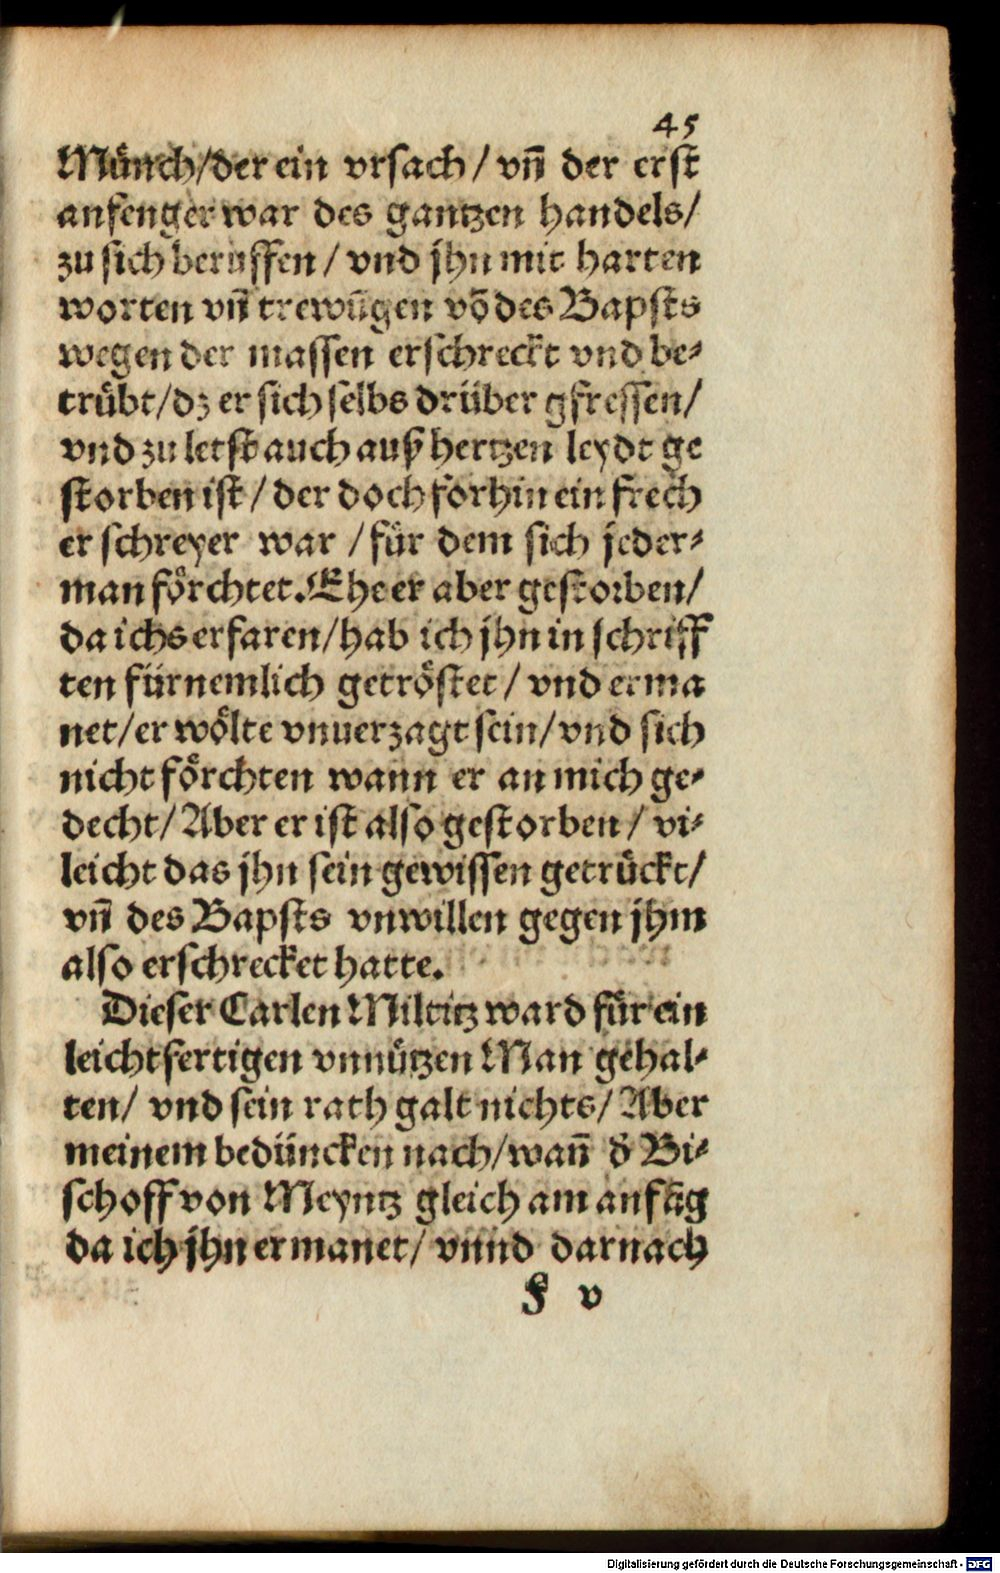 45
Münch/der ein vrsach/ vñ der erst
anfenger war des gantzen handels/
zu sich beruffen/ vnd jhn mit harten
worten vñ trewũgen võ des Bapsts
wegen der massen erschreckt vnd be-
trübt/dz er sich selbs drüber gfressen/
vnd zu letst auch auß hertzen leydt ge
storben ist/ der doch forhin ein frech
er schreyer war /für dem sich jeder-
man förchtet. Ehe er aber gestorben/
da ichs erfaren/hab ich jhn in schriff
ten fürnemlich getröstet/ vnd erma
net/er wölte vnuerzagt sein/vnd sich
nicht förchten wann er an mich ge-
decht/ Aber er ist also gestorben/ vi-
leicht das jhn sein gewissen getrückt/
vñ des Bapsts vnwillen gegen jhm
also erschrecket hatte.
Dieser Carlen Miltitz ward für ein
leichtfertigen vnnützen Man gehal-
ten/ vnd sein rath galt nichts/ Aber
meinem bedüncken nach/wañ d̕ Bi-
schoff von Meyntz gleich am anfãg
da ich jhn ermanet/ vnnd darnach
F v
Digitalisierung gefördert durch die Deutsche Forschungsgemeinschaft - DFG